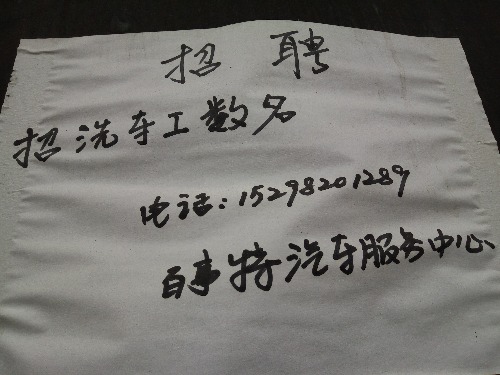 招 聘
招洗车工数名
电话：15298201289
百事特汽车服务中心